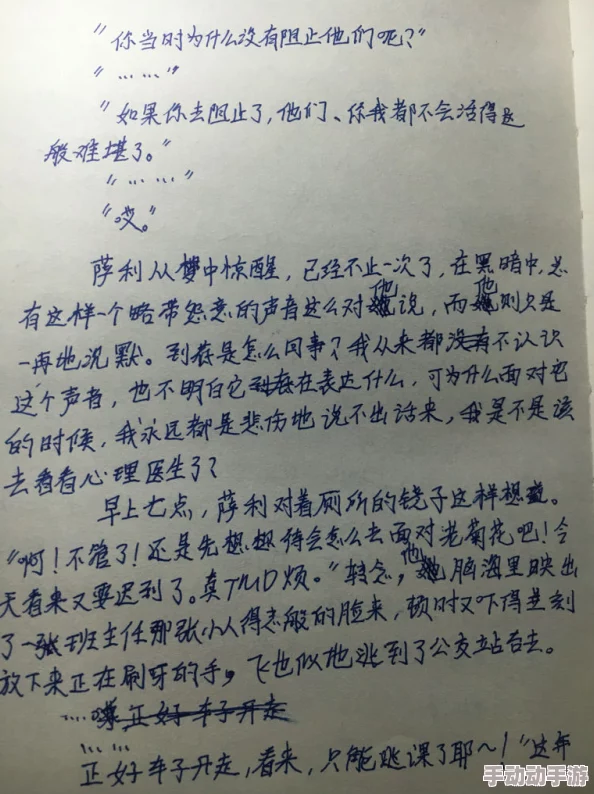 “你当时为什么没有阻止他们呢?”
“……”
“如果你去阻止了,他们、你我都不会活得这
般难堪了。”
“……”
“哎。”
萨利从梦中惊醒,已经不止一次了,在黑暗中,总
有这样一个略带怨意的声音这么对他说,而他则只是
一再地沉默。到底是怎么回事?我从来都不认识
这个声音,也不明白它在表达什么,可为什么面对它
的时候,我永远都是悲伤地说不出话来,我是不是该
去看看心理医生了?
早上七点,萨利对着厕所的镜子这样想。
“啊!不管了!还是先想想待会怎么去面对老菊花吧!今
天看来又要迟到了。真TMD烦。”转念,他脑海里映出
了一张班主任那张小人得志般的脸来,顿时又吓得立刻
放下来正在刷牙的手,飞也似地逃到了公交站台去。
……正好车子开走
……
正好车子开走,看来,只能逃课了耶~!”这年
手动动手游